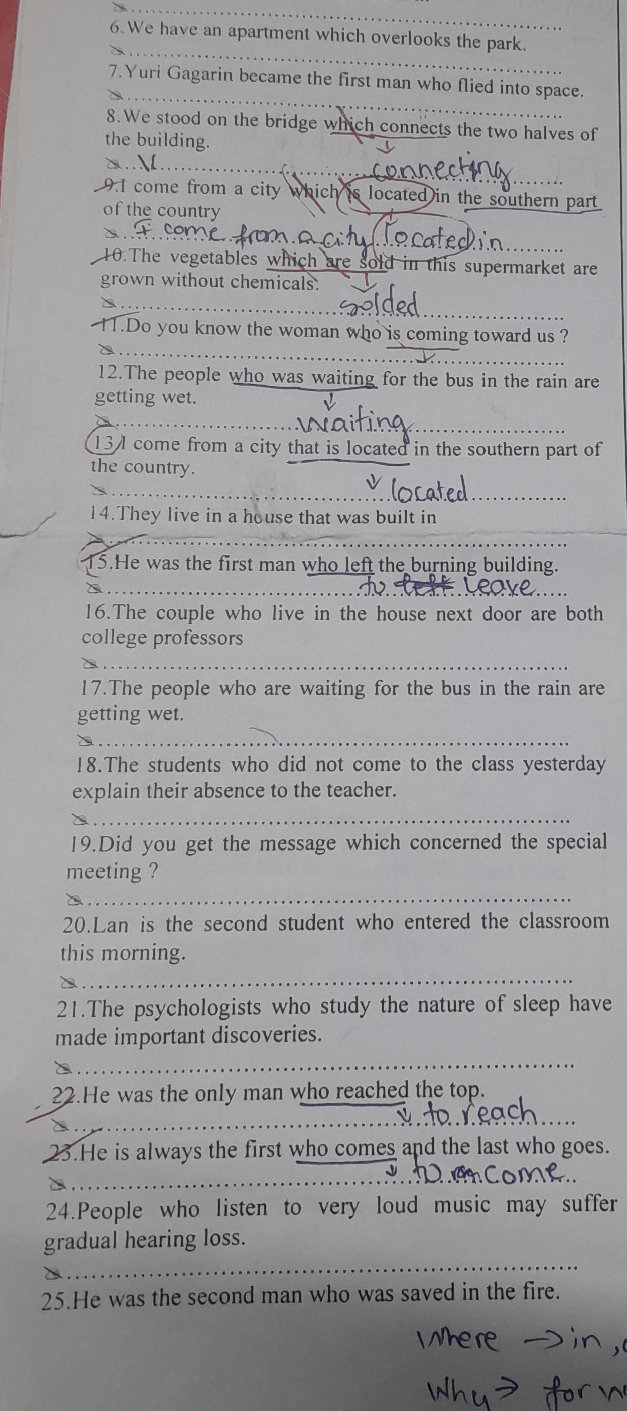 6.We have an apartment which overlooks the park.
7.Yuri Gagarin became the first man who flied into space.
8.We stood on the bridge which connects the two halves of
the building.
connecting
9.I come from a city which is located in the southern part
of the country
I come from a city located in
10.The vegetables which are sold in this supermarket are
grown without chemicals.
solded
11.Do you know the woman who is coming toward us ?
12.The people who was waiting for the bus in the rain are
getting wet.
waiting
13.I come from a city that is located in the southern part of
the country.
located
14.They live in a house that was built in
15.He was the first man who left the burning building.
to left leave
16.The couple who live in the house next door are both
college professors
17.The people who are waiting for the bus in the rain are
getting wet.
18.The students who did not come to the class yesterday
explain their absence to the teacher.
19.Did you get the message which concerned the special
meeting ?
20.Lan is the second student who entered the classroom
this morning.
21.The psychologists who study the nature of sleep have
made important discoveries.
22.He was the only man who reached the top.
to reach
23.He is always the first who comes and the last who goes.
to come
24.People who listen to very loud music may suffer
gradual hearing loss.
25.He was the second man who was saved in the fire.
Where → in,
Why → for